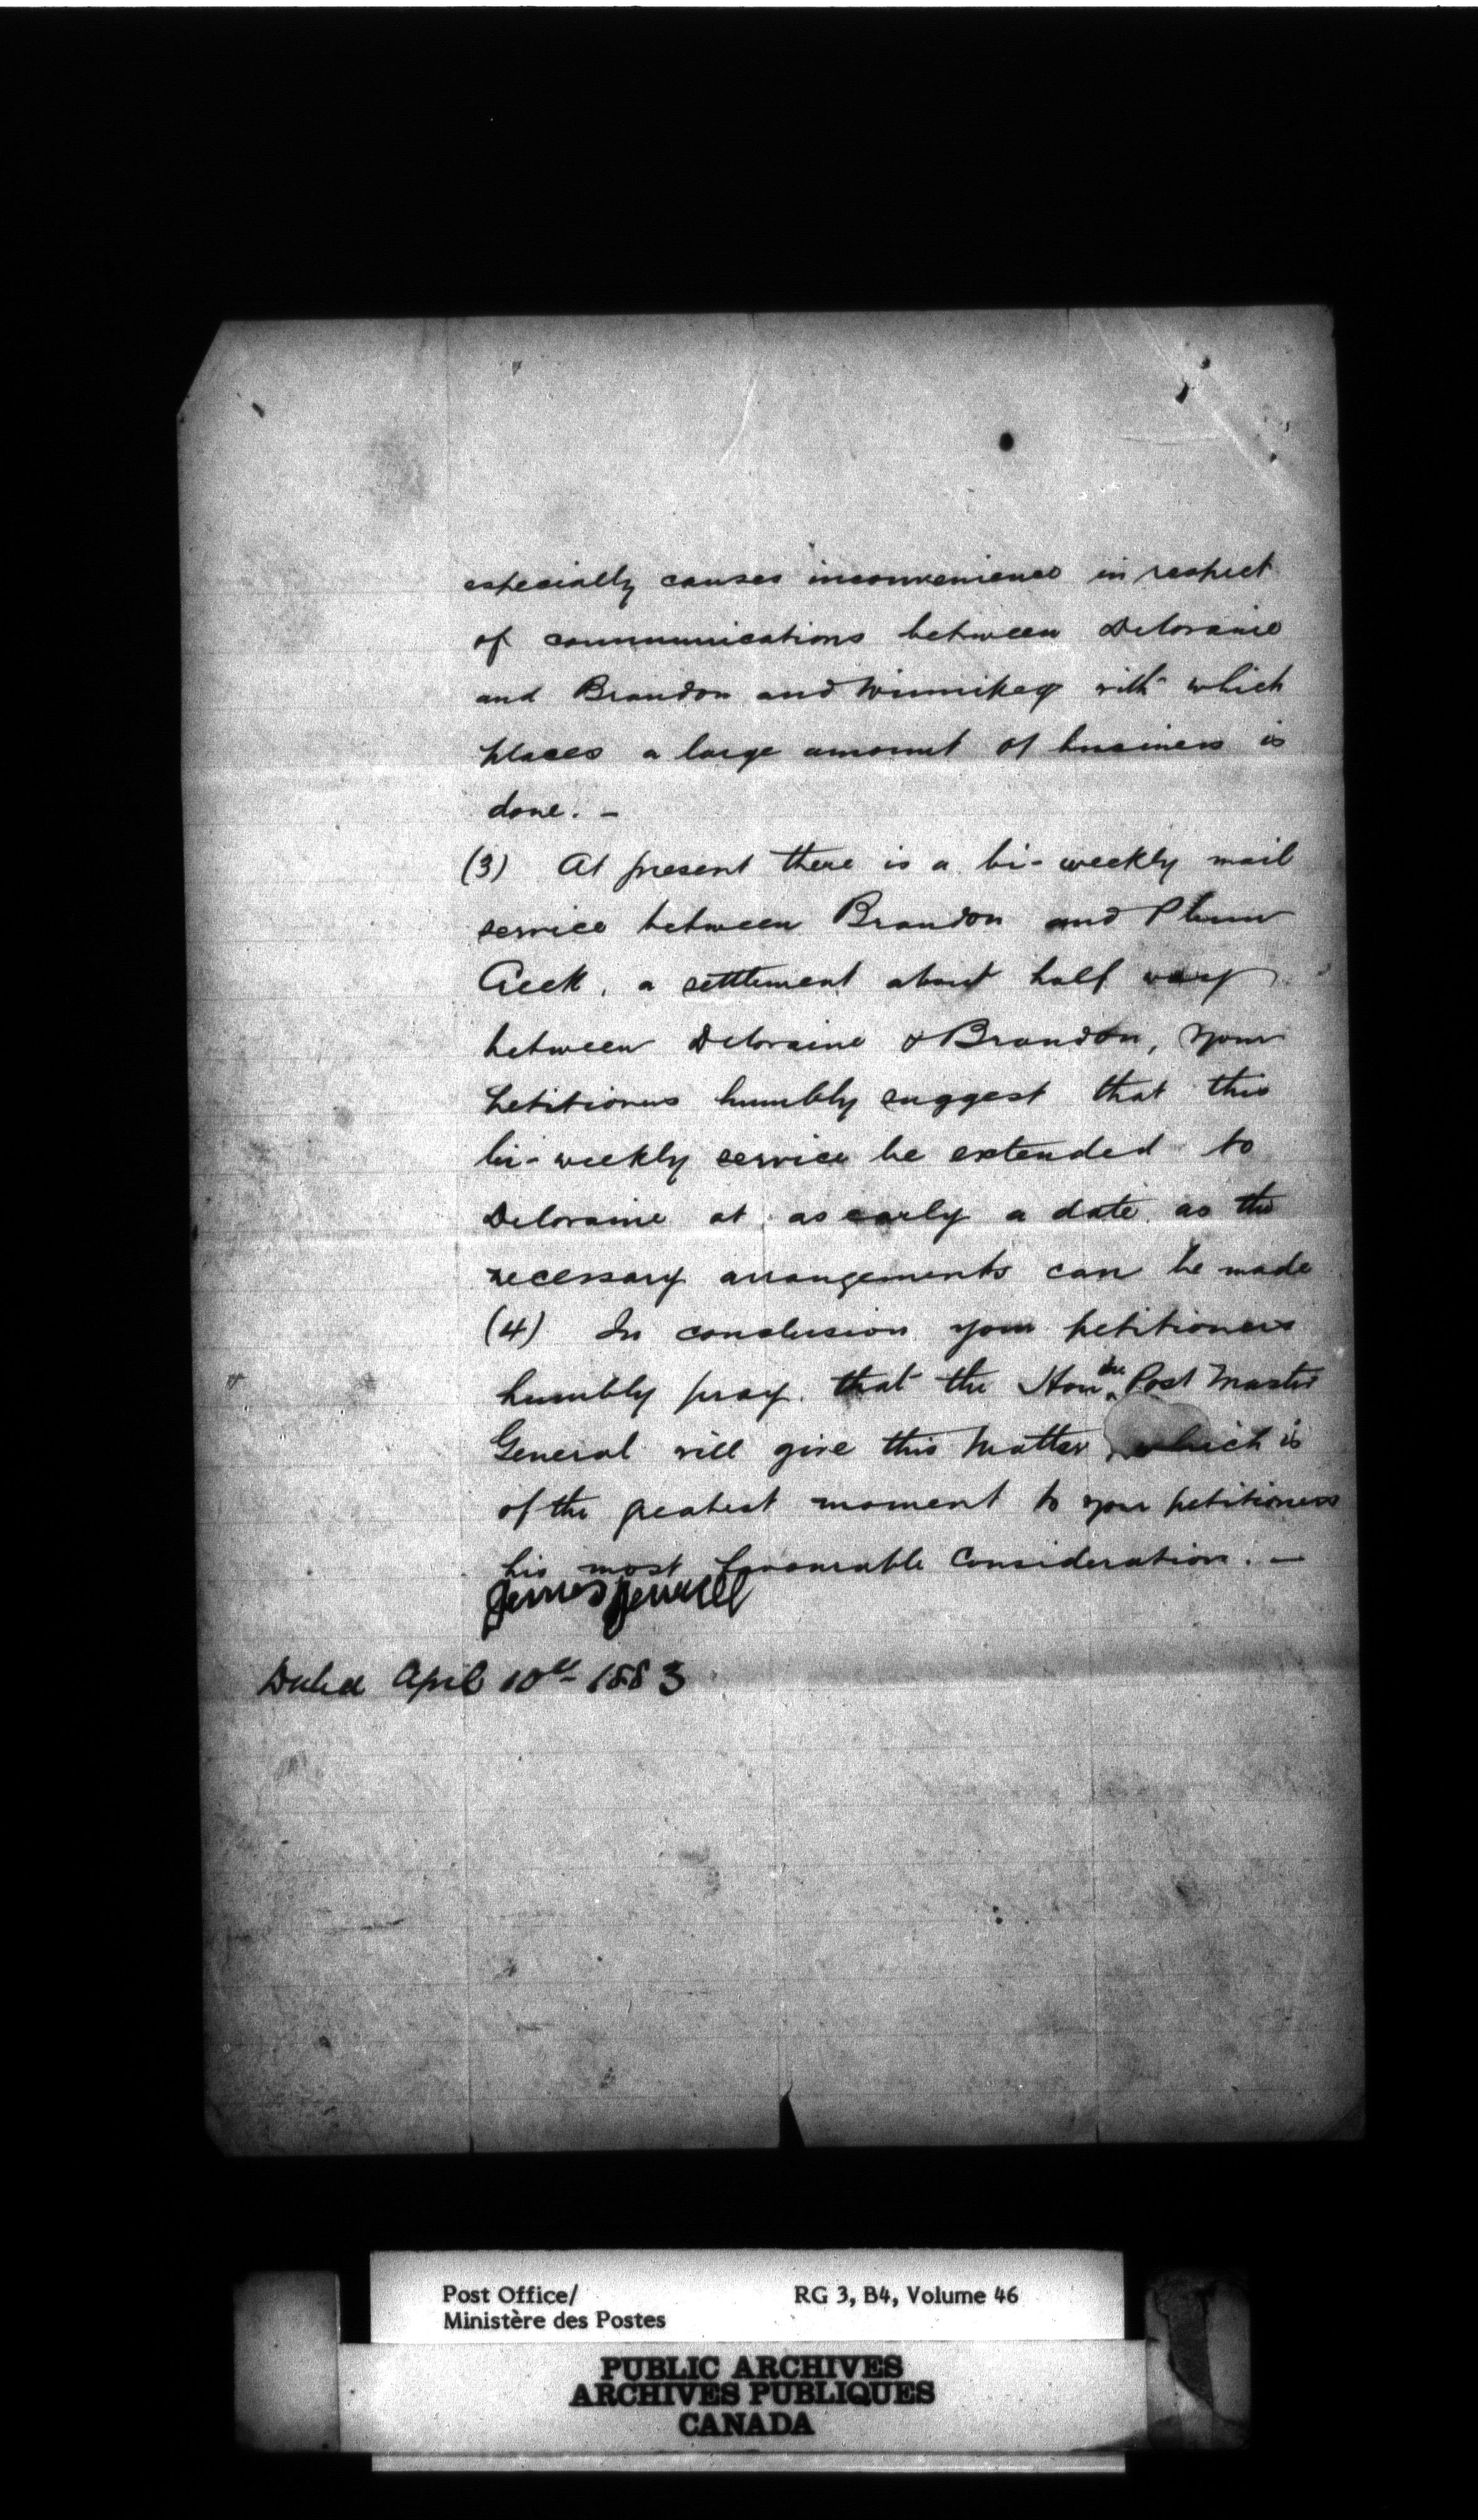 especially causes inconvenience in respect
of communications between Deloraine
and Brandon and Winnipeg with which
places a large amount of business is
done. –
(3) At present there is a bi-weekly mail
service between Brandon and Plum
Creek, a settlement about half way
between Deloraine & Brandon, your
petitioners humbly suggest that this
bi-weekly service be extended to
Deloraine at as early a date as the
necessary arrangements can be made
(4) In conclusion your petitioners
humbly pray that the Hon the Post Master
General will give this matter which is
of the greatest moment to your petitioners
his most favourable consideration. –
James
Dated April 10th 1883
Post Office/ RG 3, B4, Volume 46
Ministère des Postes
PUBLIC ARCHIVES
ARCHIVES PUBLIQUES
CANADA